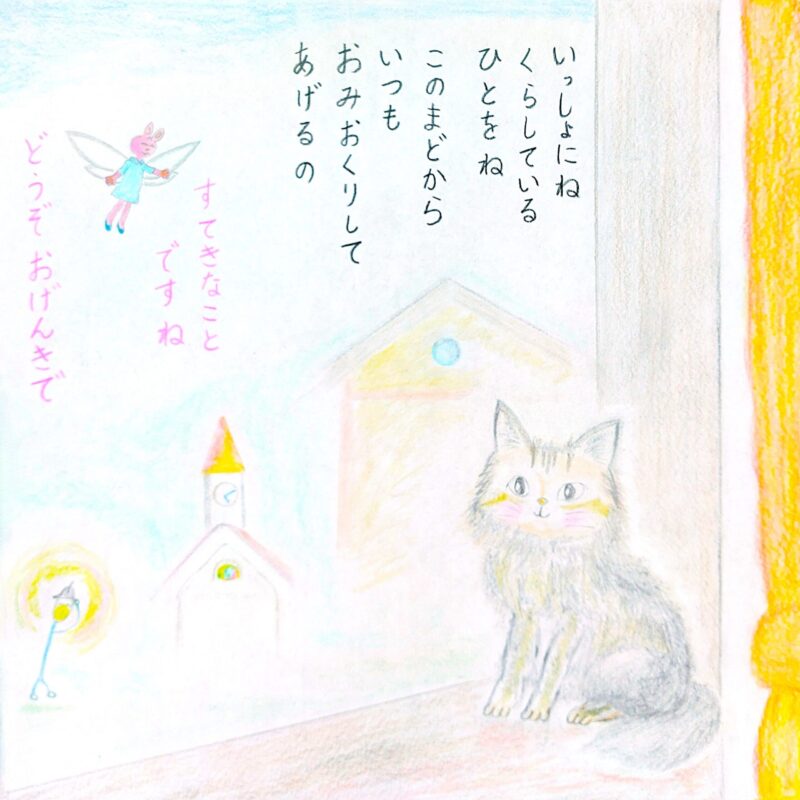 いっしょにね
くらしている
ひとをね
このまどから
いつも
おみおくりして
あげるの
すてきなこと
ですね
どうぞ おげんきで